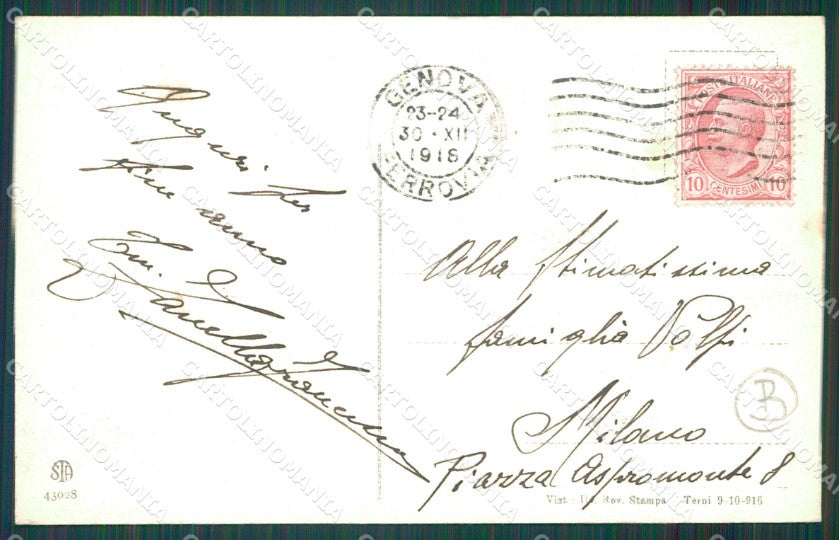 GENOVA
23-24
30·XII
1916
FERROVIA
POSTE ITALIANE
10 CENTESIMI 10
Auguri per
fine anno
Fam.
Alla Stimatissima
famiglia Volpi
Milano
Piazza Aspromonte 8
B
STA
43028
Vist : Uf. Rev. Stampa - Terni 9-10-916
CARTOLINOMANIA